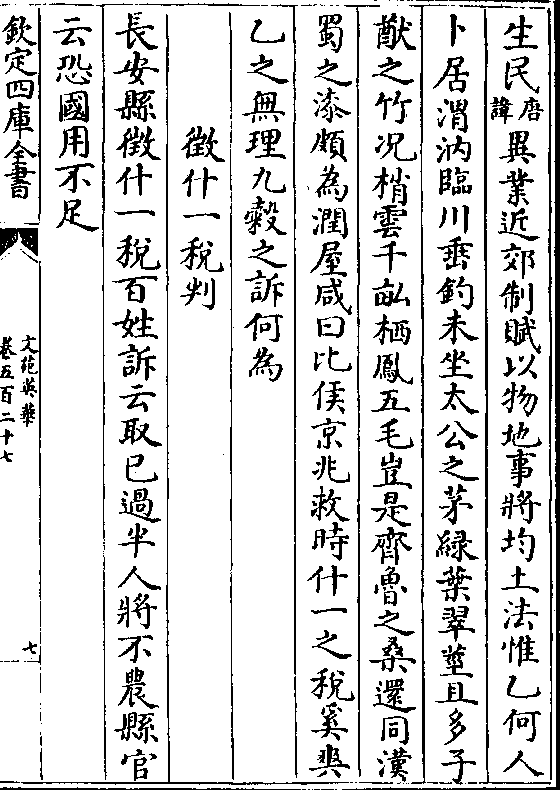 生民唐諱異業近郊制賦以物地事將均土法惟乙何人
卜居渭汭臨川垂釣未坐太公之茅綠葉翠莖且多子
猷之竹况梢雲千畝栖鳳五毛豈是齊魯之桑還同漢
蜀之漆頗為潤屋咸曰比侯京兆救時什一之稅奚爽
乙之無理九穀之訴何為
徵什一稅判
長安縣徵什一稅百姓訴云取已過半人將不農縣官
云恐國用不足
欽定四庫全書
文苑英華
卷五百二十七
七